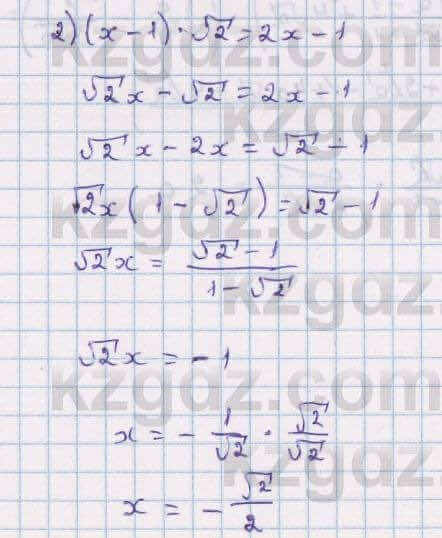 2) (x - 1) · √2 = 2x - 1
√2x - √2 = 2x - 1
√2 x - 2x = √2 - 1
√2x (1 - √2) = √2 - 1
√2x = (√2 - 1)/(1 - √2)
√2x = - 1
x = - 1/√2 · √2/√2
x = - √2/2
kzgdz.com
kzgdz.com
kzgdz.com
kzgdz.com
kzgdz.com
kzgdz.com